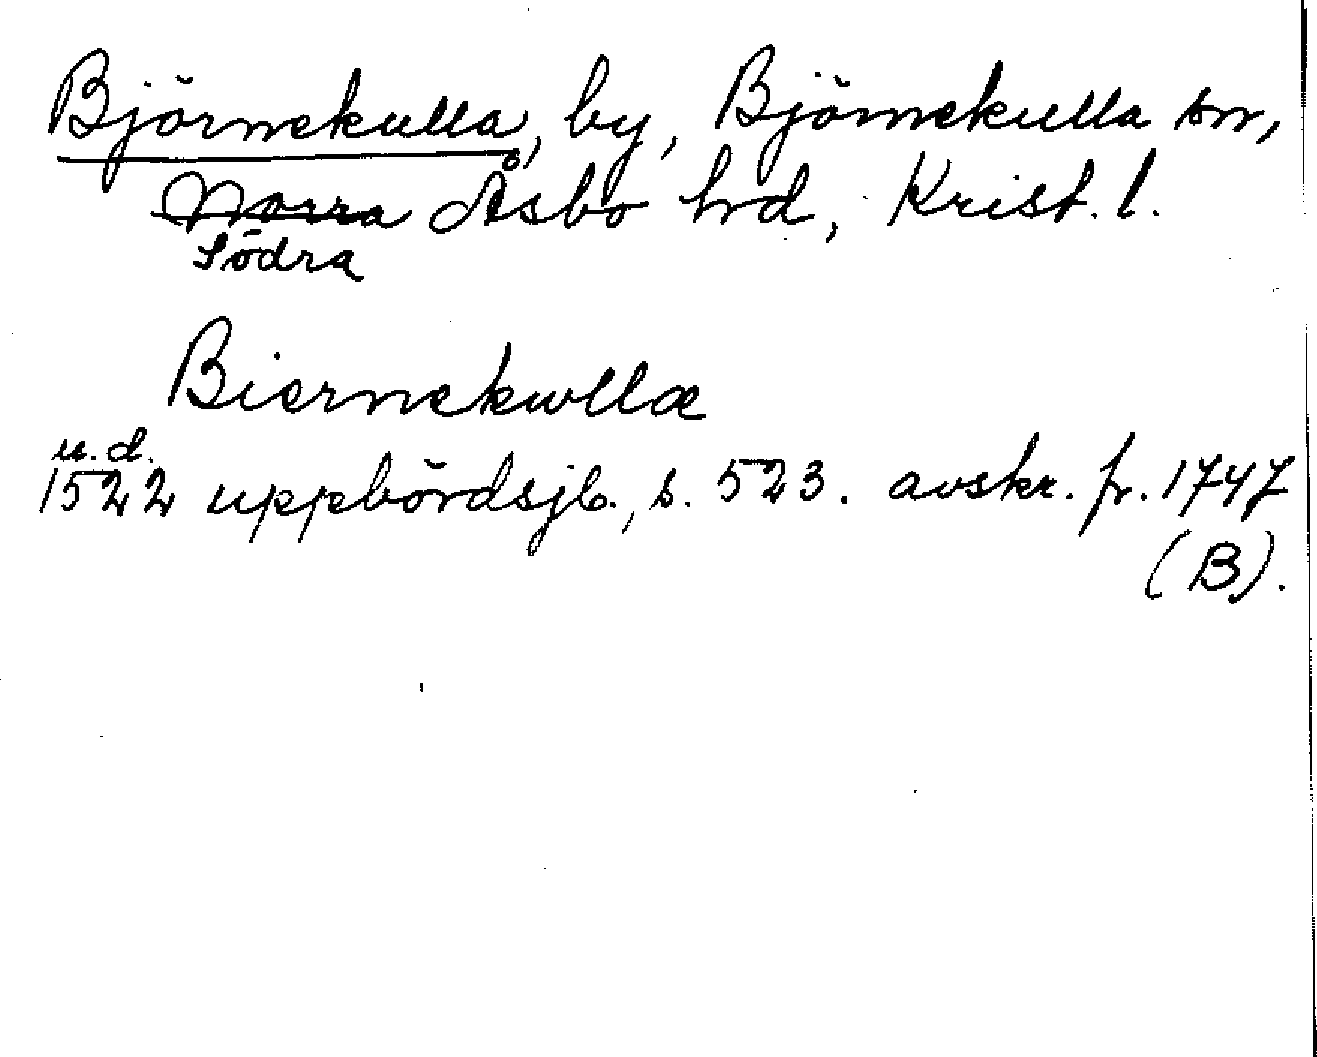 Björnekulla, by, Björnekulla sn,
Norra Åsbo hrd, Krist. l.
Södra
Biernekwllæ
u. d.
1522 uppbördsjb., s. 523. avskr. fr. 1747
(B).